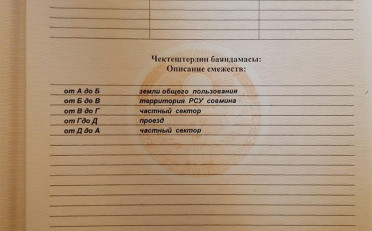 Чектештердин баяндамасы:
Описание смежеств:
от А до Б земли общего пользования
от Б до В территория РСУ совмина
от В до Г частный сектор
от Гдо Д проезд
от Д до А частный сектор